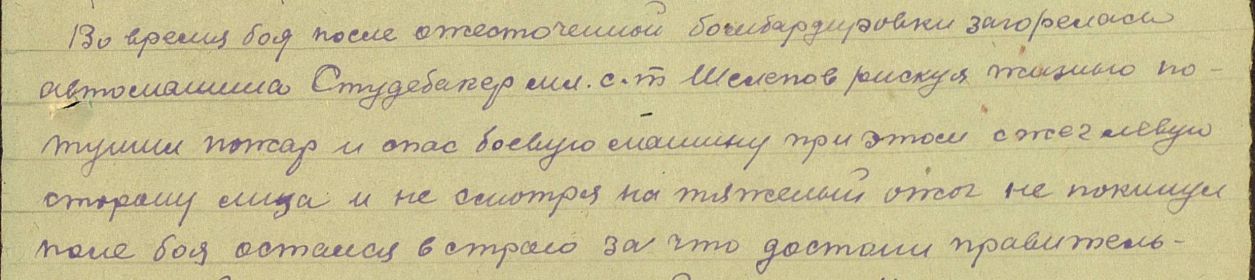 Во время боя после ожесточенной бомбардировки загорелась
автомашина Студебакер мл. с-т Шелепов рискуя жизнью по-
тушил пожар и спас боевую машину при этом сжег левую
сторону лица и не смотря на тяжелый ожог не покинул
поле боя остался в строю за что достоин правитель-